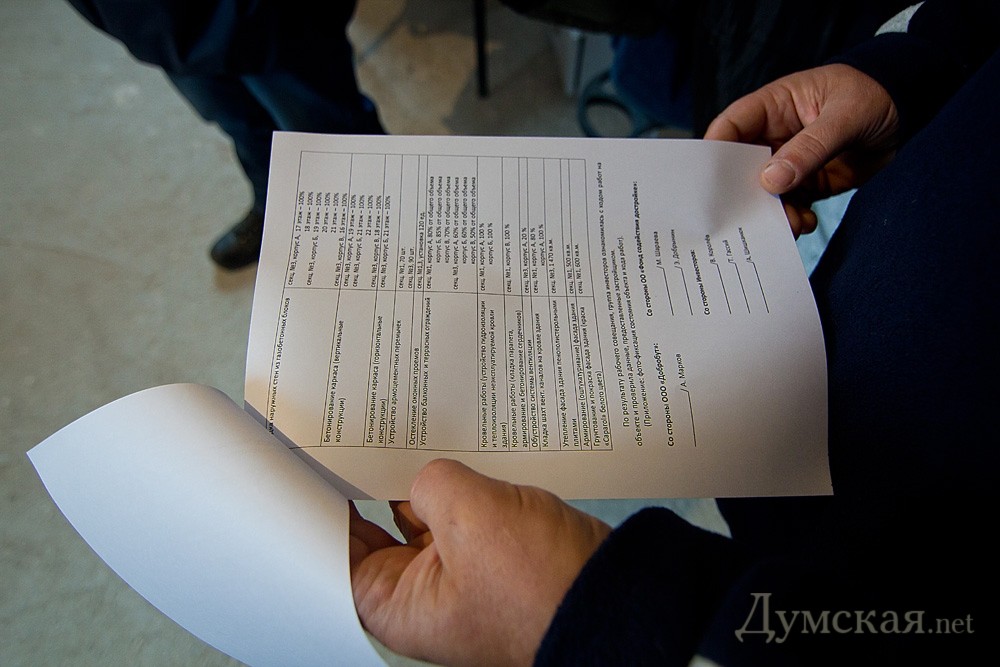 наружных стен из газобетонных блоков
секц. №3, корпус А, 17 этаж – 100%
18 этаж – 100%
секц. №3, корпус Б, 19 этаж – 100%
20 этаж – 100%
21 этаж – 100%
секц. №3, корпус В, 16 этаж – 100%
Бетонирование каркаса (вертикальные
конструкции)
секц. №3, корпус А, 19 этаж – 100%
секц. №3, корпус Б, 21 этаж – 100%
22 этаж – 100%
Бетонирование каркаса (горизонтальные
конструкции)
секц. №3, корпус В, 18 этаж – 100%
секц. №3, корпус Б, 21 этаж – 100%
Устройство армоцементных перемычек
секц. №1, 70 шт.
секц. №3, 90 шт.
Остекление оконных проемов
секц. №1,3, установка 120 ед.
Устройство балконных и террасных ограждений
секц. №1, корпус А, 80% от общего объема
корпус Б, 85% от общего объема
корпус В, 70% от общего объема
секц. №3, корпус А, 60% от общего объема
корпус Б, 60% от общего объема
корпус В, 50% от общего объема
Кровельные работы (устройство гидроизоляции
и теплоизоляции неэксплуатируемой кровли
здания)
секц. №1, корпус А, 100 %
корпус Б, 100 %
Кровельные работы (кладка парапета,
армирование и бетонирование сердечников)
секц. №1, корпус В, 100 %
Обустройство системы вентиляции
секц. №3, корпус А, 20 %
Кладка шахт вент. каналов на кровле здания
секц. №1, корпус А, 80 %
корпус А, 100 %
Утепление фасада здания пенополистерольными
плитами
секц. №3, 1 470 кв.м.
Армирование (оштукатуривание) фасада здания
секц. №1, 500 кв.м.
Грунтование и покраска фасада здания (краска
«Caparol» белого цвета)
секц. №1, 600 кв.м.
По результату рабочего совещания, группа инвесторов ознакомилась с ходом работ на
объекте и проверила данные, предоставленные застройщиком.
(Приложение: фото-фиксация состояния объекта и хода работ).
Со стороны ООО «Добробут»:
/ А. Марков
Со стороны ОО «Фонд содействия достройке»:
/М. Шаргаева
/ З. Добрянин
Со стороны Инвесторов:
/В. Королёв
/Т. Гастой
/А.
Думская.net